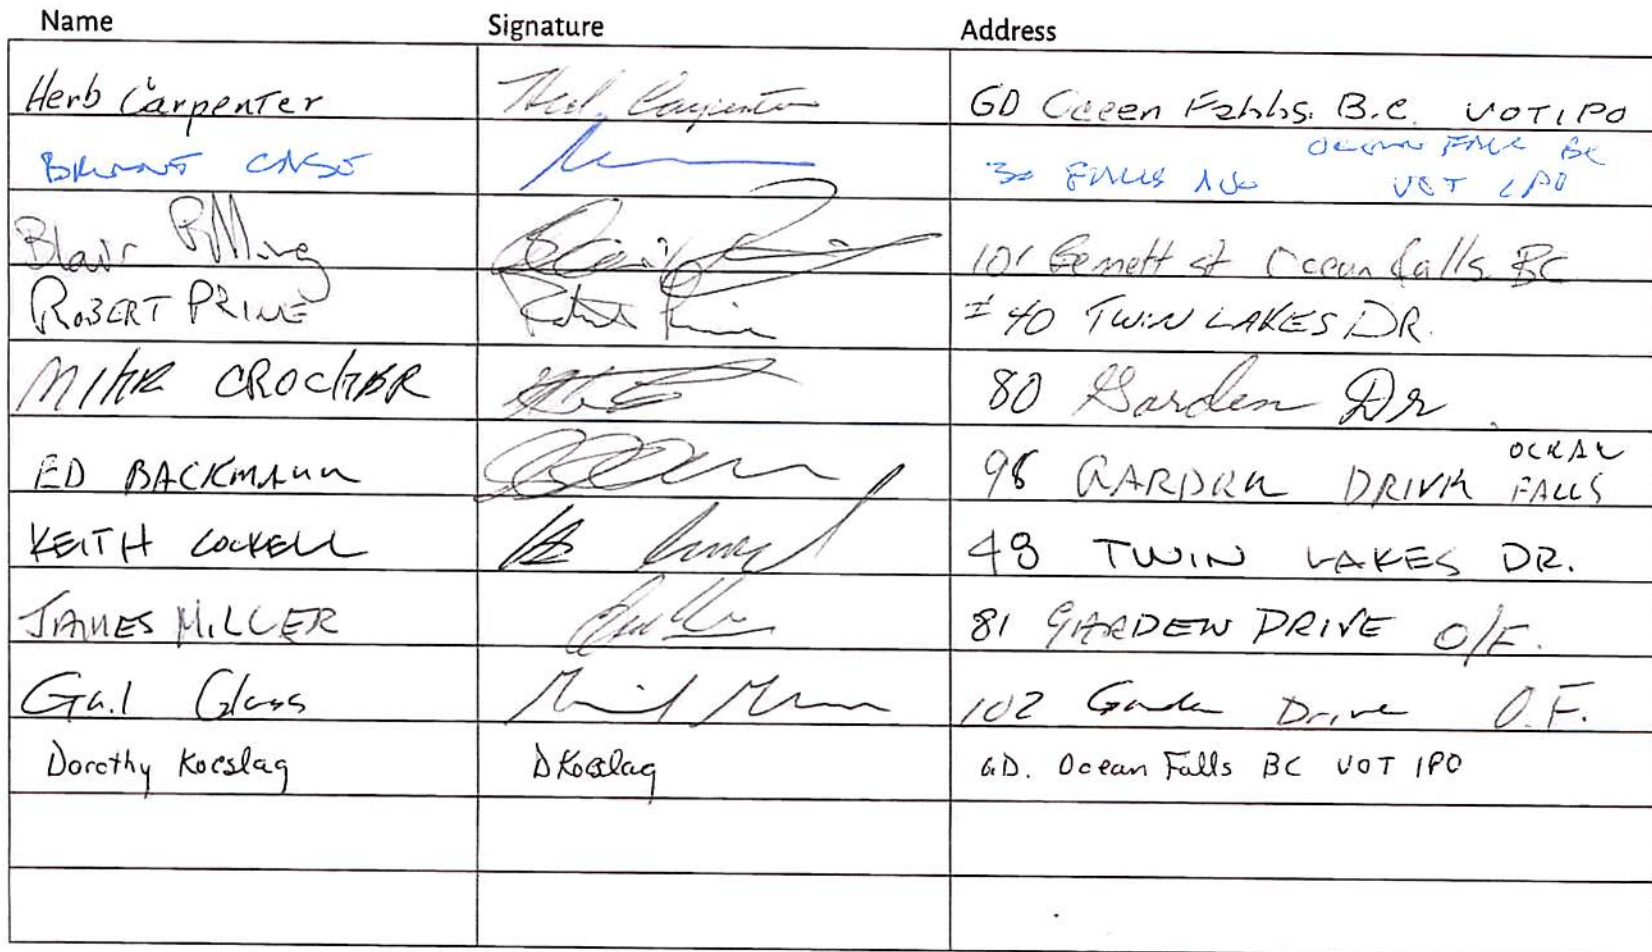 Name Signature Address
Herb Carpenter Herb Carpenter GD Ocean Falls. B.C. V0T1P0
CASE OCEAN FALLS BC
30 FALLS V0T 1P0
Blair 101 st Ocean falls BC
ROBERT PRINE Robert Prine #40 TWIN LAKES DR.
MIKE CROCKER 80 Garden Dr
ED BACKMANN 98 GARDEN DRIVE OCEAN
FALLS
KEITH COCKELL 48 TWIN LAKES DR.
JAMES MILLER 81 GARDEN DRIVE O/F.
Gail Glass 102 Garden Drive O.F.
Dorothy Koeslag D Koeslag G.D. Ocean Falls BC V0T 1P0